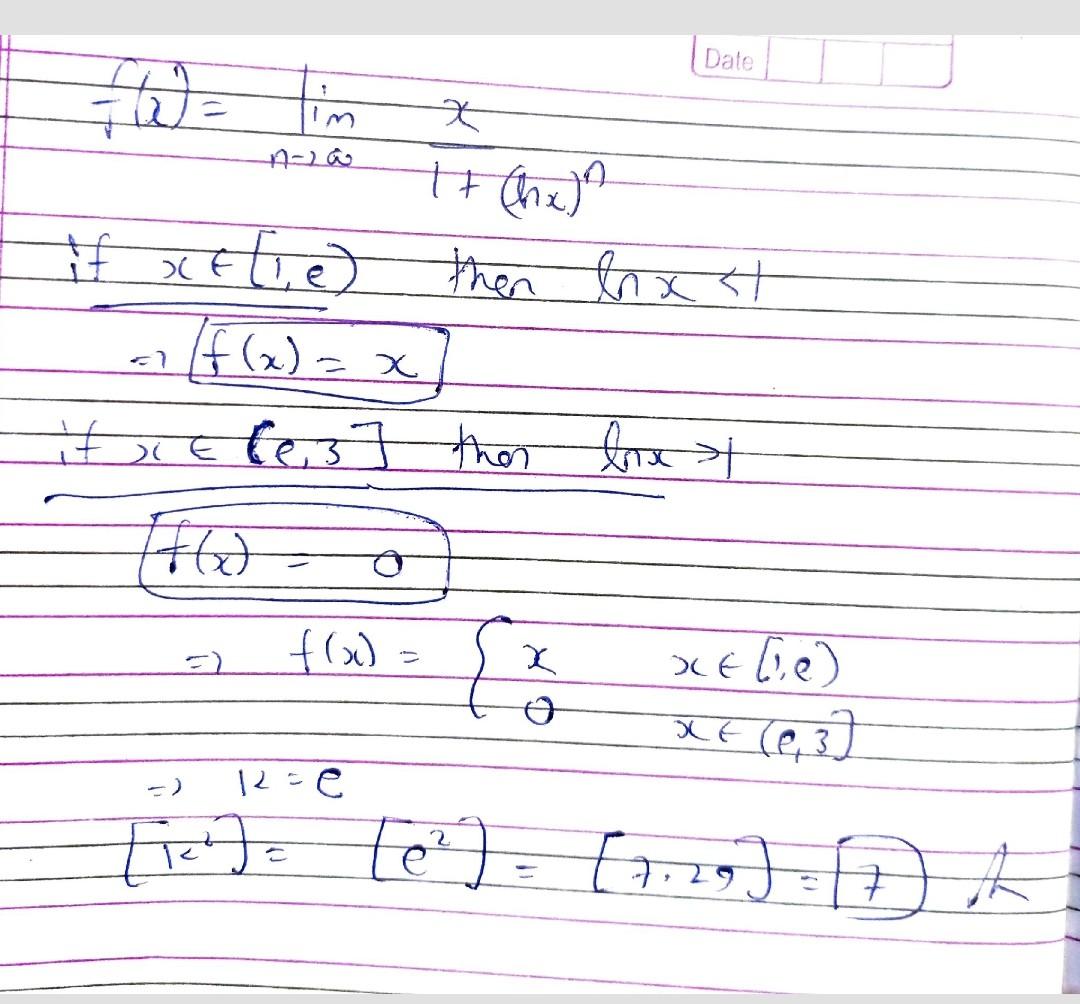 Date
f(x) = lim x
n→∞ 1 + (lnx)ⁿ
if x ∈ [1, e) then ln x < 1
⇒ f(x) = x
if x ∈ (e, 3] then lnx > 1
f(x) = 0
⇒ f(x) = { x x ∈ [1, e)
0 x ∈ (e, 3]
⇒ k = e
[k²] = [e²] = [7.29] = 7